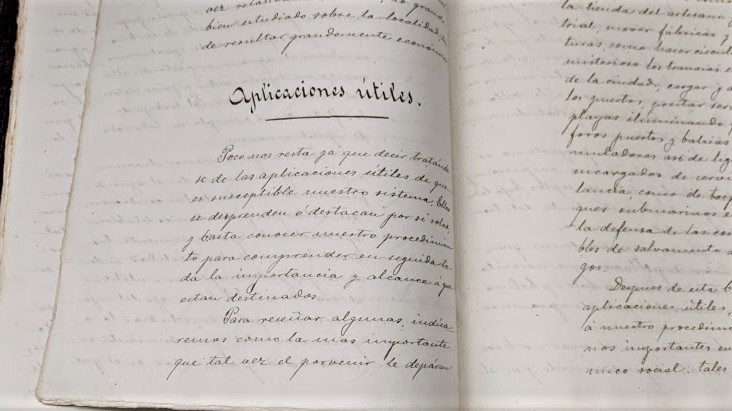 bien estudiado sobre la localidad
de resultar grandemente económ
Aplicaciones útiles.
Poco nos resta ya que decir tratándo
se de las aplicaciones útiles de que
es susceptible nuestro sistema. Ellas
se desprenden ó destacan por si solas,
y basta conocer nuestro procedimien
to para comprender en seguida to
da la importancia y alcance a que
estan destinados.
Para reseñar algunas, indica
remos como la mas importante
que tal vez el porvenir le depáran
la tienda del artesano
trial, mover fábricas y
turas, como hacer circul
misterioso los tranvias e
de la ciudad, cargar y
los puertos, prestar ser
playas iluminando
faros puertos y balizas
encargados de
lancia, como de torp
ques submarinos e
la defensa de las cos
bles de salvamento
gos.
Despues de esta b
aplicaciones útiles,
á nuestro procedim
nos importantes en
mico social, tales